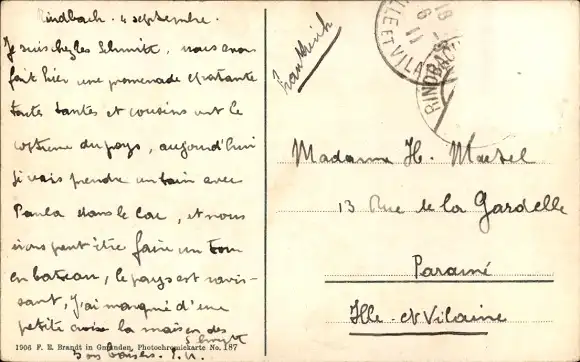 Rindbach. 4 septembre.
Je suis chez les Schmitt, nous avons
fait hier une promenade épatante
toutes tantes et cousins ont le
costume du pays, aujourd'hui
je vais prendre un bain avec
Paula dans le lac, et nous
irons peut être faire un tour
en bateau, le pays est ravis-
sant, J'ai marqué d'une
petite croix la maison des
Schmitt
Bons baisers.
1906 F. E. Brandt in Gmunden, Photochromiekarte No. 187
Frankreich
ILLE ET VILA
RINDBACH
Madame H.
13 Rue de la Gardelle
Paramé
Ille-et-Vilaine